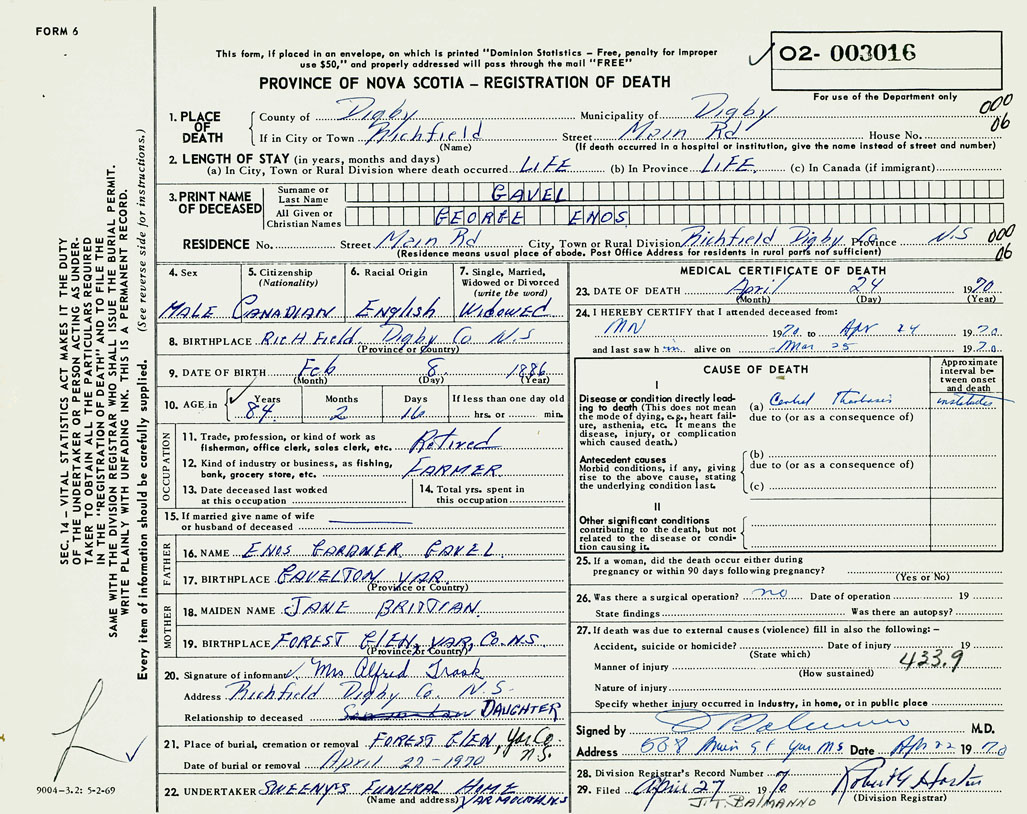 FORM 6
This form, if placed in an envelope, on which is printed "Dominion Statistics – Free, penalty for improper
use $50," and properly addressed will pass through the mail "FREE"
PROVINCE OF NOVA SCOTIA – REGISTRATION OF DEATH
O2- 003016
For use of the Department only
000
06
1. PLACE OF DEATH
County of Digby Municipality of Digby
If in City or Town Richfield Street Main Rd House No.
(Name) (If death occurred in a hospital or institution, give the name instead of street and number)
2. LENGTH OF STAY (in years, months and days)
(a) In City, Town or Rural Division where death occurred LIFE (b) In Province LIFE (c) In Canada (if immigrant)
3. PRINT NAME OF DECEASED
Surname or Last Name GAVEL
All Given or Christian Names GEORGE ENOS
RESIDENCE No. Street Main Rd City, Town or Rural Division Richfield Digby Co Province N.S 000
(Residence means usual place of abode. Post Office Address for residents in rural parts not sufficient) 06
4. Sex 5. Citizenship (Nationality) 6. Racial Origin 7. Single, Married, Widowed or Divorced (write the word)
MALE CANADIAN English WIDOWED
8. BIRTHPLACE RICHField Digby Co N.S
(Province or Country)
9. DATE OF BIRTH Feb 8 1886
(Month) (Day) (Year)
10. AGE in Years Months Days If less than one day old
84 2 16 hrs. or min.
OCCUPATION
11. Trade, profession, or kind of work as fisherman, office clerk, sales clerk, etc. Retired
12. Kind of industry or business, as fishing, bank, grocery store, etc. FARMER
13. Date deceased last worked at this occupation
14. Total yrs. spent in this occupation
15. If married give name of wife or husband of deceased
FATHER
16. NAME ENOS GARDNER GAVEL
17. BIRTHPLACE GAVELTON YAR.
(Province or Country)
MOTHER
18. MAIDEN NAME JANE
19. BIRTHPLACE FOREST GLEN, YAR, Co. N.S
(Province or Country)
20. Signature of informant Mrs Alfred Trask
Address Richfield Digby Co. N.S.
Relationship to deceased DAUGHTER
21. Place of burial, cremation or removal FOREST GLEN, Yar Co. N.S.
Date of burial or removal April 27-1970
22. UNDERTAKER SWEENY'S FUNERAL HOME
(Name and address) YARMOUTH, N.S
MEDICAL CERTIFICATE OF DEATH
23. DATE OF DEATH April 24 1970
(Month) (Day) (Year)
24. I HEREBY CERTIFY that I attended deceased from:
1970 to Apr 24 1970
and last saw him alive on Mar 25 1970
CAUSE OF DEATH
Approximate interval between onset and death
I
Disease or condition directly leading to death (This does not mean the mode of dying, e.g., heart failure, asthenia, etc. It means the disease, injury, or complication which caused death.)
(a)
due to (or as a consequence of)
Antecedent causes
Morbid conditions, if any, giving rise to the above cause, stating the underlying condition last.
(b)
due to (or as a consequence of)
(c)
II
Other significant conditions contributing to the death, but not related to the disease or condition causing it.
25. If a woman, did the death occur either during pregnancy or within 90 days following pregnancy?
(Yes or No)
26. Was there a surgical operation? no Date of operation 19
State findings Was there an autopsy?
27. If death was due to external causes (violence) fill in also the following: –
Accident, suicide or homicide? Date of injury 19
(State which)
Manner of injury 433.9
(How sustained)
Nature of injury
Specify whether injury occurred in Industry, in home, or in public place
Signed by M.D.
Address 508 Main St Date Apr 22 1970
28. Division Registrar's Record Number 7
29. Filed April 27 1970
(Division Registrar)
J.T. BALMANNO
SEC. 14 – VITAL STATISTICS ACT MAKES IT THE DUTY
OF THE UNDERTAKER OR PERSON ACTING AS UNDER-
TAKER TO OBTAIN ALL THE PARTICULARS REQUIRED
IN THE "REGISTRATION OF DEATH" AND TO FILE THE
SAME WITH THE DIVISION REGISTRAR WHO SHALL ISSUE THE BURIAL PERMIT.
WRITE PLAINLY WITH UNFADING INK. THIS IS A PERMANENT RECORD.
Every item of information should be carefully supplied. (See reverse side for instructions.)
9004-3.2: 5-2-69